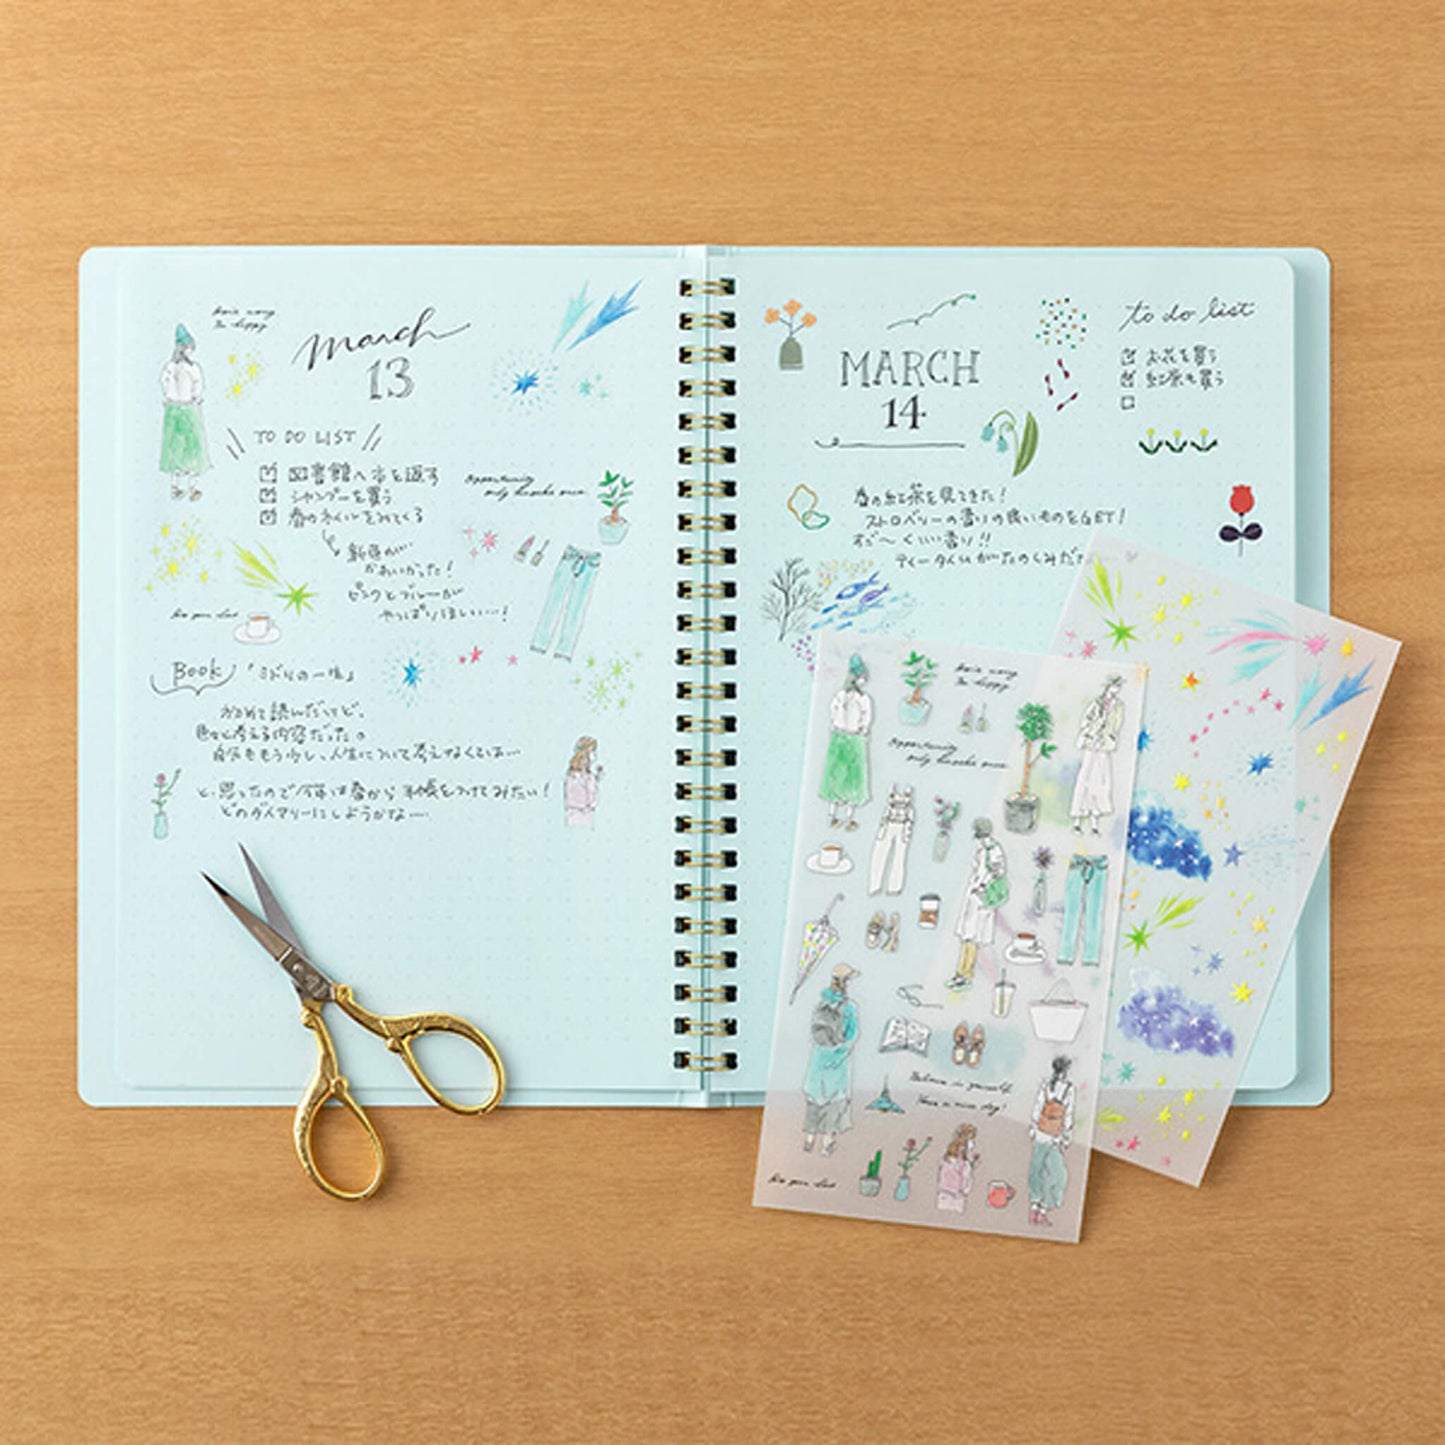 March
13
TO DO LIST
図書館へ本を返す
シャンプーを買う
春のネイルをみてくる
新色が…
かわいかった!
ピンクとブルーが
やっぱりほしい…!
Opportunity
only knocks once
Book 「ミドリの一生」
おわって読んだけど、
色々と考える内容だったの
自分ももう少し、人生について考えなくては…
と、思ったので今年は春から手帳をつけてみたい!
どのダイアリーにしようかな…
MARCH
14
to do list
お花を買う
紅茶を買う
春の紅茶を見てきた!
ストロベリーの香りの良いものをGET!
すご〜くいい香り!!
ティータイムがたのしみだ
Opportunity
only knocks once
Believe in yourself
Have a nice day!